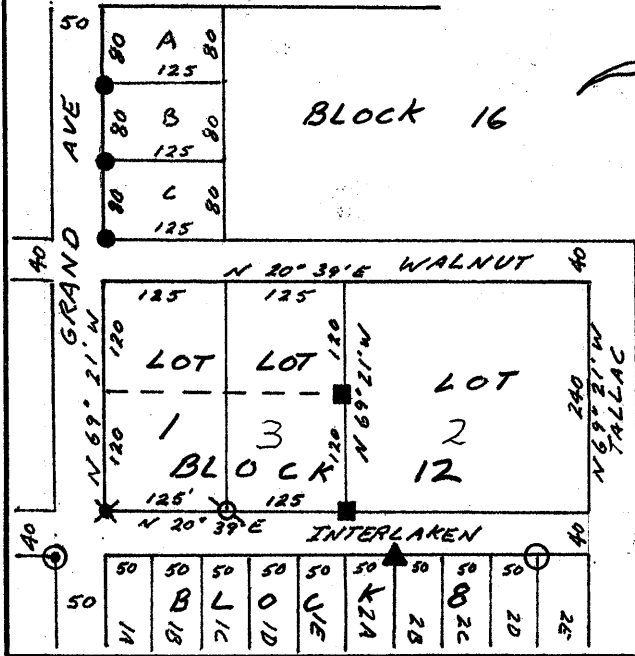 50
80 A 80
125
80 B 80
125
80 C 80
125
BLOCK 16
GRAND AVE
40
N 20° 39' E WALNUT 40
125 125
120 120
LOT LOT LOT
1 3 2
N 69° 21' W
N 69° 21' W
240
N 69° 21' W
TALLAC
120 120
BLOCK 12
125' 125
N 20° 39' E
INTERLAKEN
40 40
50 50 50 50 50 50 50 50 50 50
BLOCK 8
1A 1B 1C 1D 1E 2A 2B 2C 2D 2E